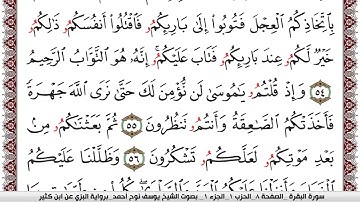 بِاتِّخَاذِكُمُ الْعِجْلَ فَتُوبُوا إِلَىٰ بَارِئِكُمُۥ فَاقْتُلُوا أَنفُسَكُمُۥ ذَٰلِكُمُۥ
خَيْرٌ لَّكُمُۥ عِندَ بَارِئِكُمُۥ فَتَابَ عَلَيْكُمُۥ إِنَّهُۥ هُوَ التَّوَّابُ الرَّحِيمُ
٥٤ وَإِذْ قُلْتُمُۥ يَٰمُوسَىٰ لَن نُّؤْمِنَ لَكَ حَتَّىٰ نَرَى اللَّهَ جَهْرَةً
فَأَخَذَتْكُمُ الصَّٰعِقَةُ وَأَنتُمُۥ تَنظُرُونَ ٥٥ ثُمَّ بَعَثْنَٰكُمُۥ مِن
بَعْدِ مَوْتِكُمُۥ لَعَلَّكُمُۥ تَشْكُرُونَ ٥٦ وَظَلَّلْنَا عَلَيْكُمُ
سورة البقرة _ الصفحة ٨ _ الحزب ١ _ الجزء ١ _ بصوت الشيخ يوسف نوح أحمد _ برواية البزي عن ابن كثير